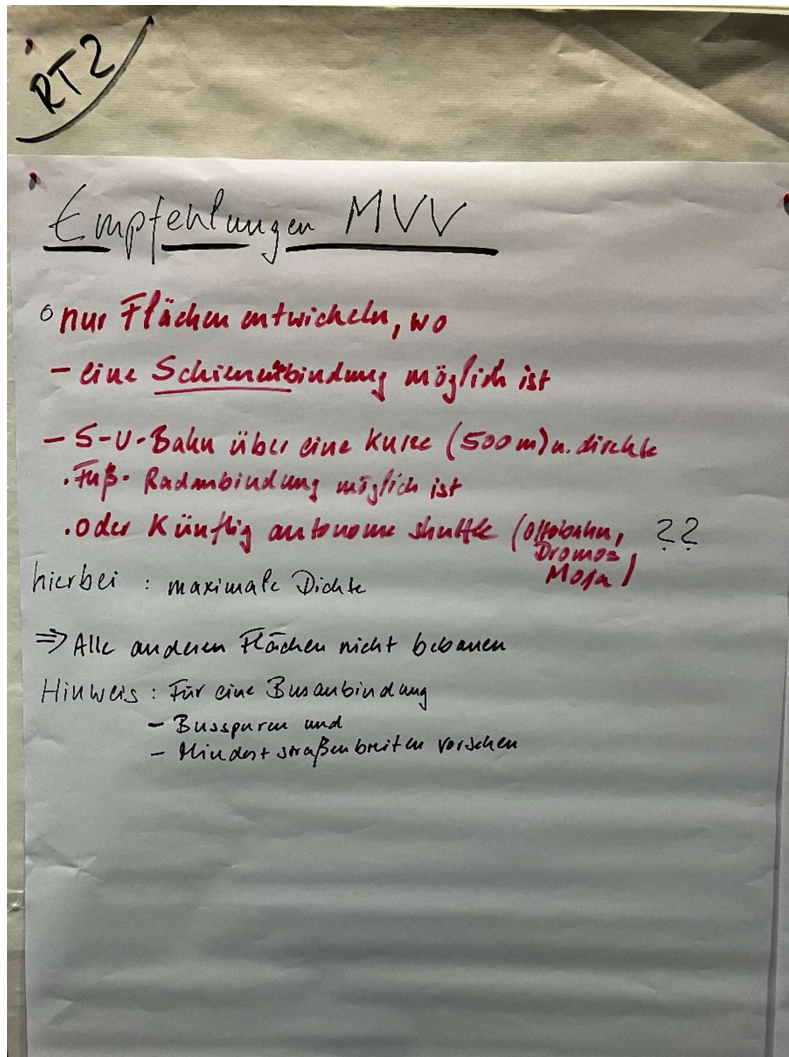 RT2
Empfehlungen MVV
o nur Flächen entwickeln, wo
- eine Schienenbindung möglich ist
- S-U-Bahn über eine kurze (500 m) u. direkte
. Fuß- Radanbindung möglich ist
. oder künftig autonome shuttle (Ottobahn, ??
Dromos
Moja)
hierbei : maximale Dichte
⇒ Alle anderen Flächen nicht bebauen
Hinweis : Für eine Busanbindung
- Busspuren und
- Mindeststraßenbreiten vorsehen